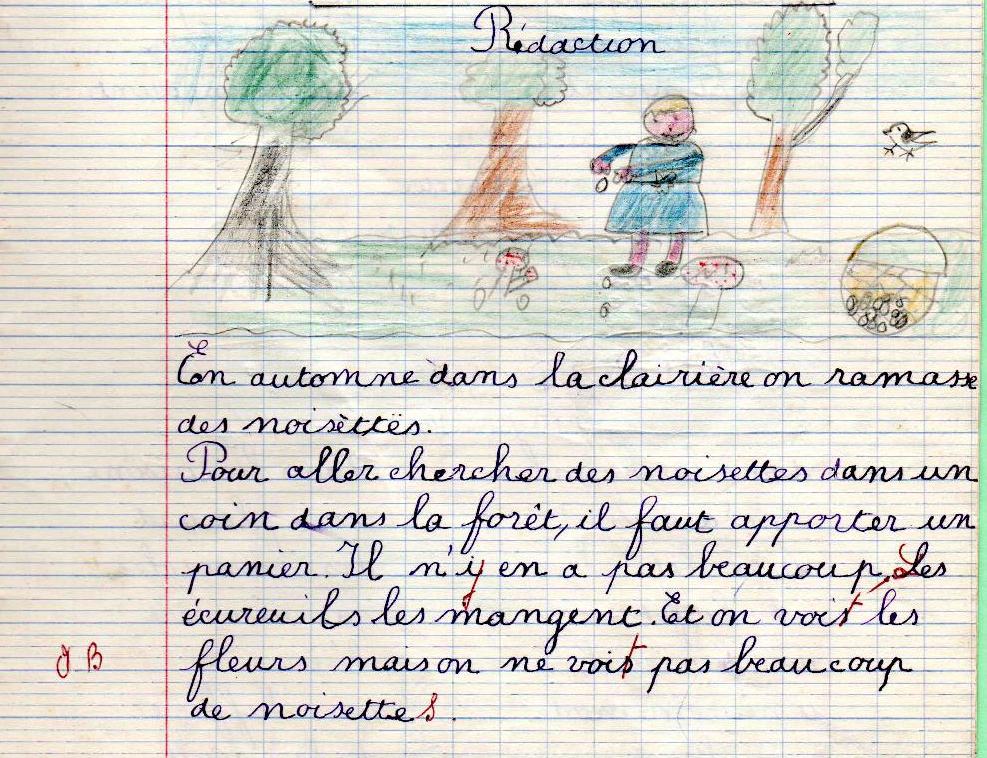 Rédaction
En automne dans la clairière on ramasse
des noisèttës.
Pour aller chercher des noisettes dans un
coin dans la forêt, il faut apporter un
panier. Il n'y en a pas beaucoup. Les
écureuils les mangent. Et on voit les
fleurs mais on ne voit pas beaucoup
J B
de noisettes.